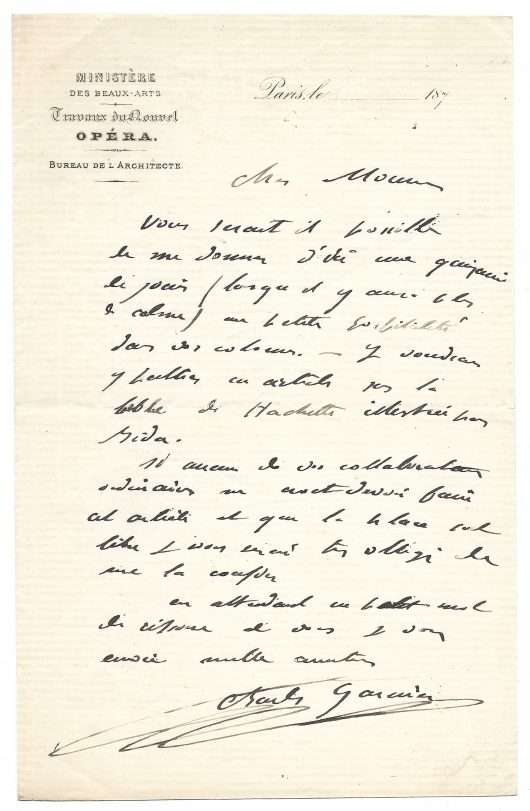 MINISTÈRE
DES BEAUX-ARTS
Travaux du Nouvel
OPÉRA.
BUREAU DE L'ARCHITECTE.
Paris, le 187
Cher Monsieur
Vous serait il possible
de me donner d'ici une quinzaine
de jours (lorsqu'il y aura plus
de calme) une petite hospitalité
dans vos colonnes. — Je voudrais
y publier un article sur la
bible de Hachette illustrée par
Bida.
Si aucun de vos collaborateurs
ordinaires ne croit devoir faire
cet article et que la place soit
libre je vous serai très obligé de
me la confier
en attendant un petit mot
de réponse de vous je vous
envoie mille amitiés
Charles Garnier